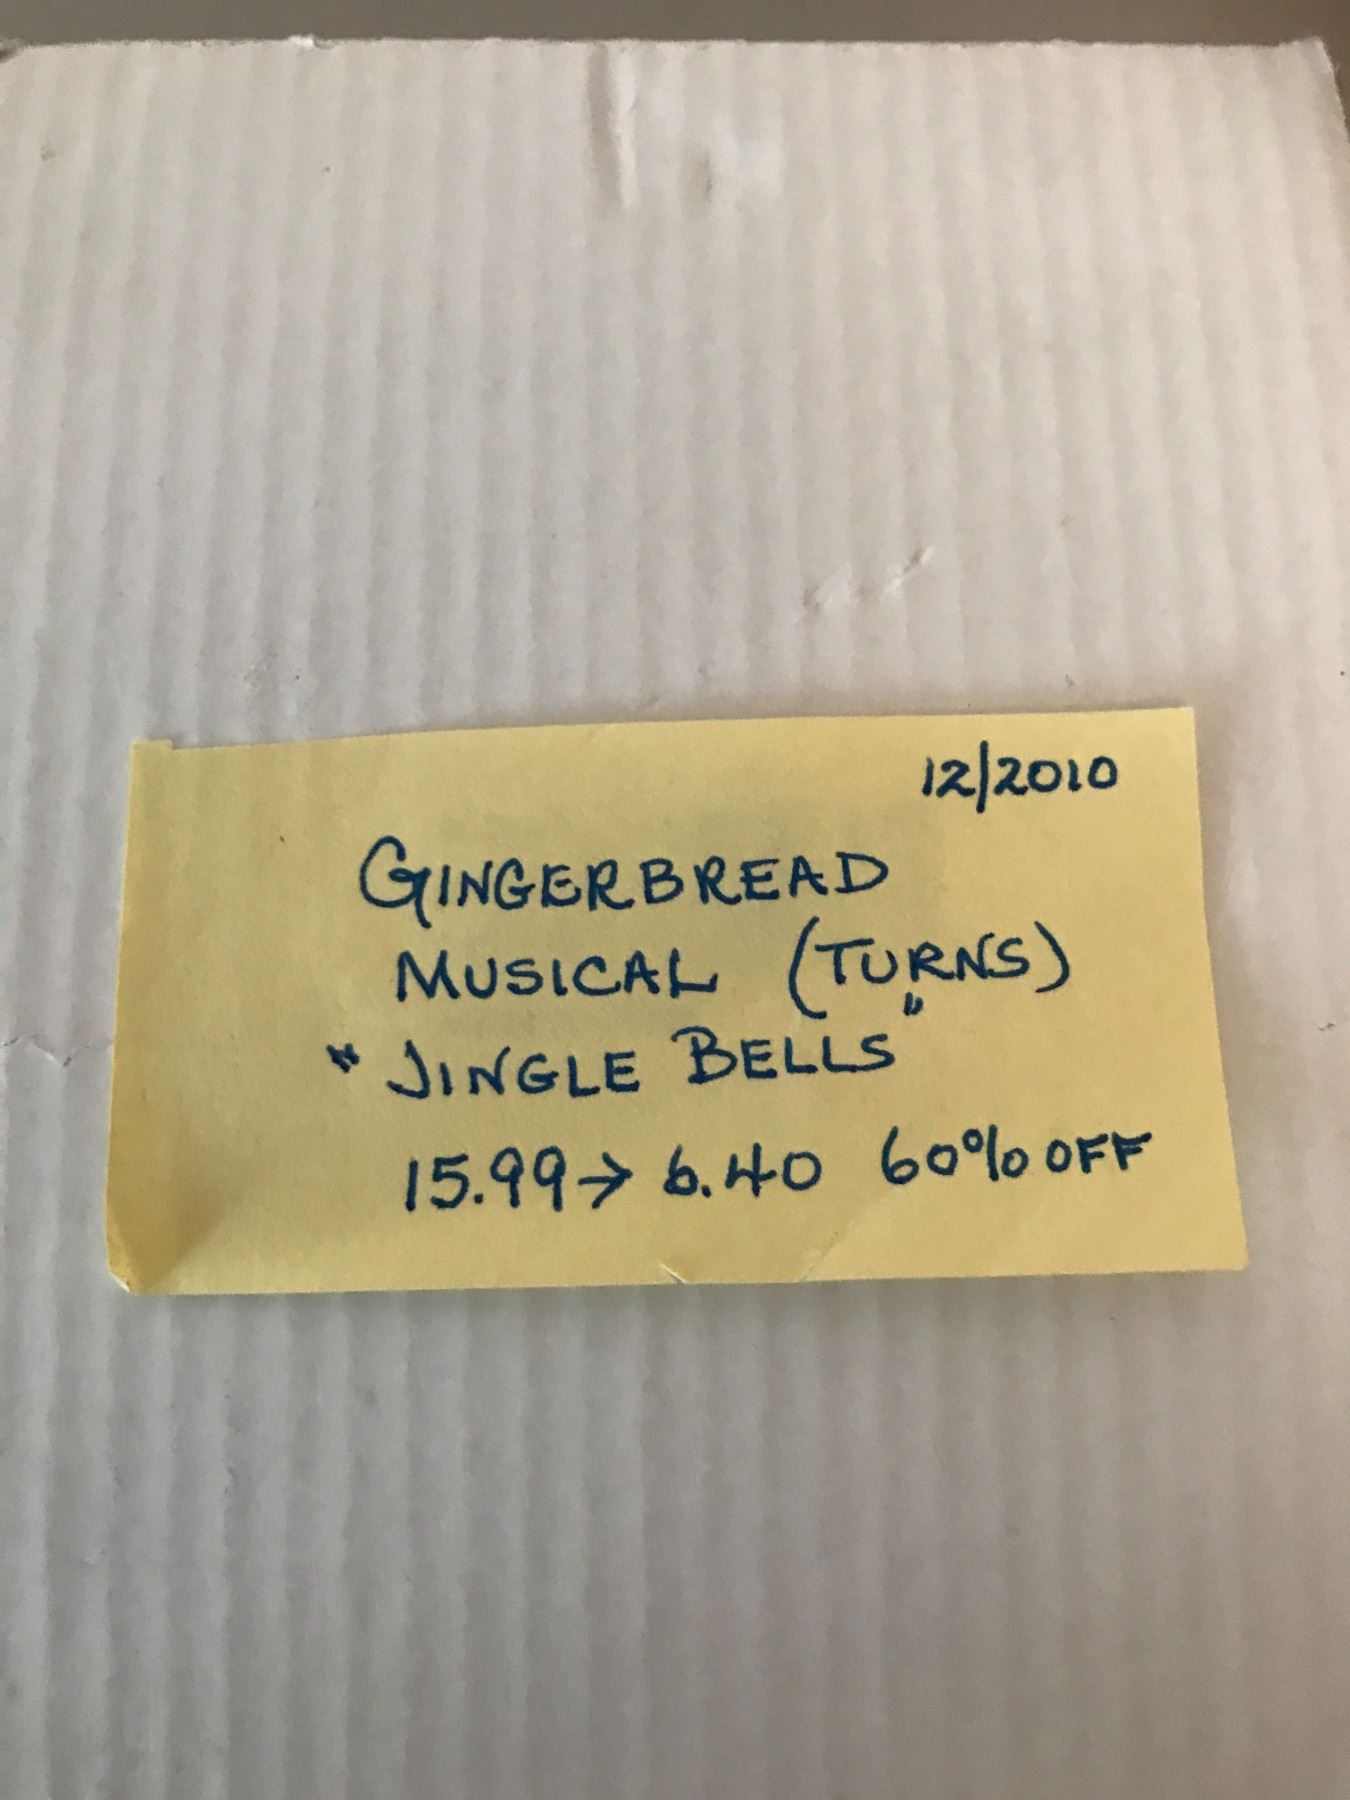 12/2010
GINGERBREAD
MUSICAL (TURNS)
"JINGLE BELLS"
15.99→6.40 60% OFF